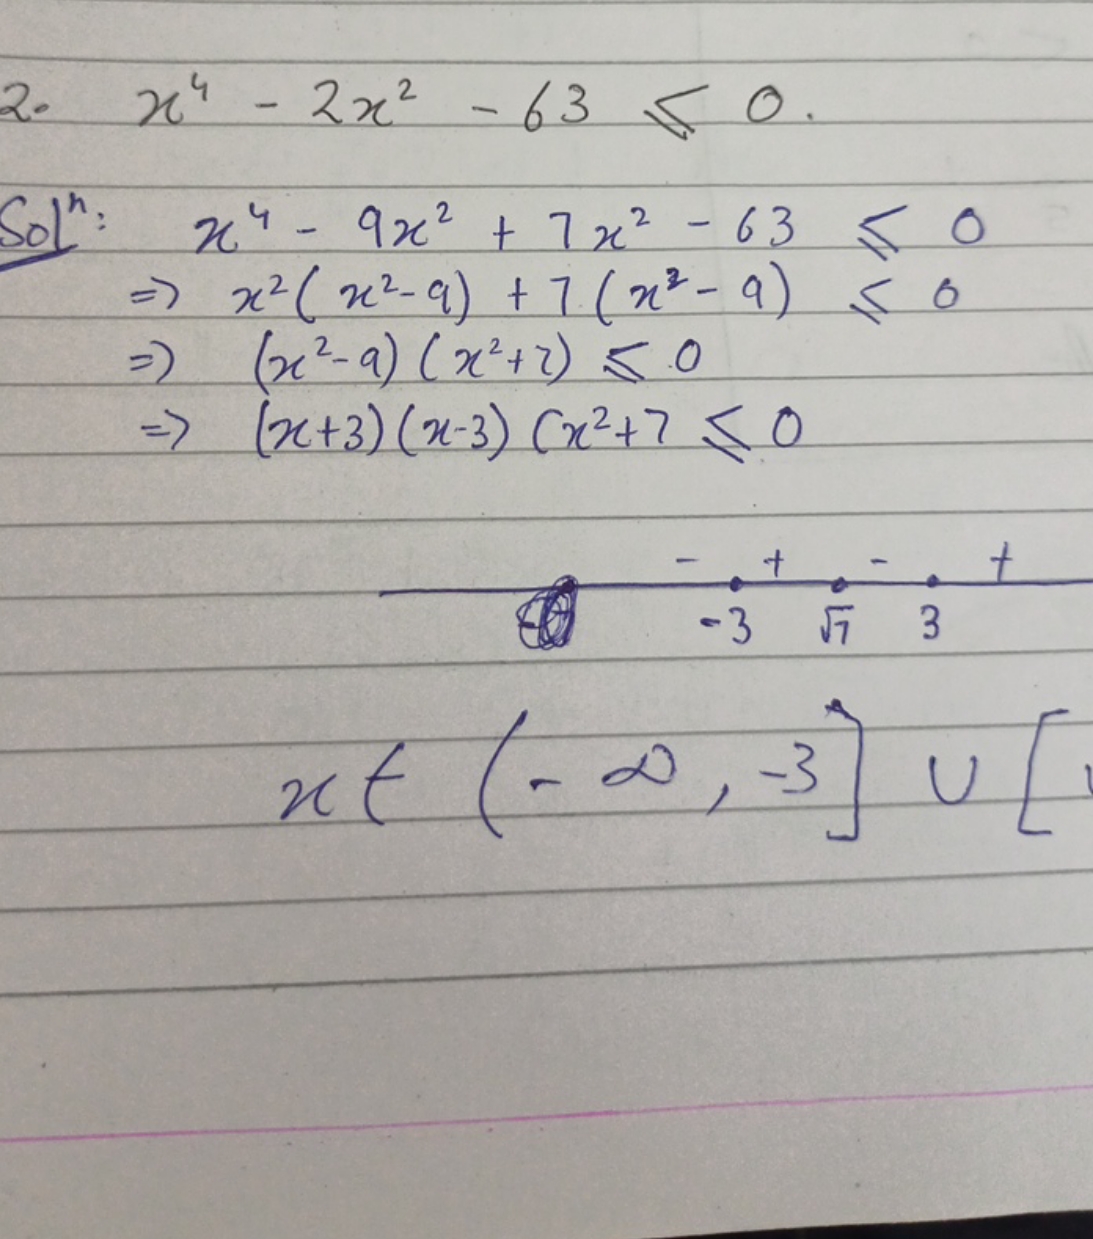 2. x⁴ - 2x² - 63 ⩽ 0.
Solⁿ: x⁴ - 9x² + 7x² - 63 ⩽ 0
=> x²(x²-9) + 7(x²-9) ⩽ 0
=> (x²-9)(x²+7) ⩽ 0
=> (x+3)(x-3)(x²+7 ⩽ 0
- + - +
-3 √7 3
x ∈ (-∞, -3] ∪ [